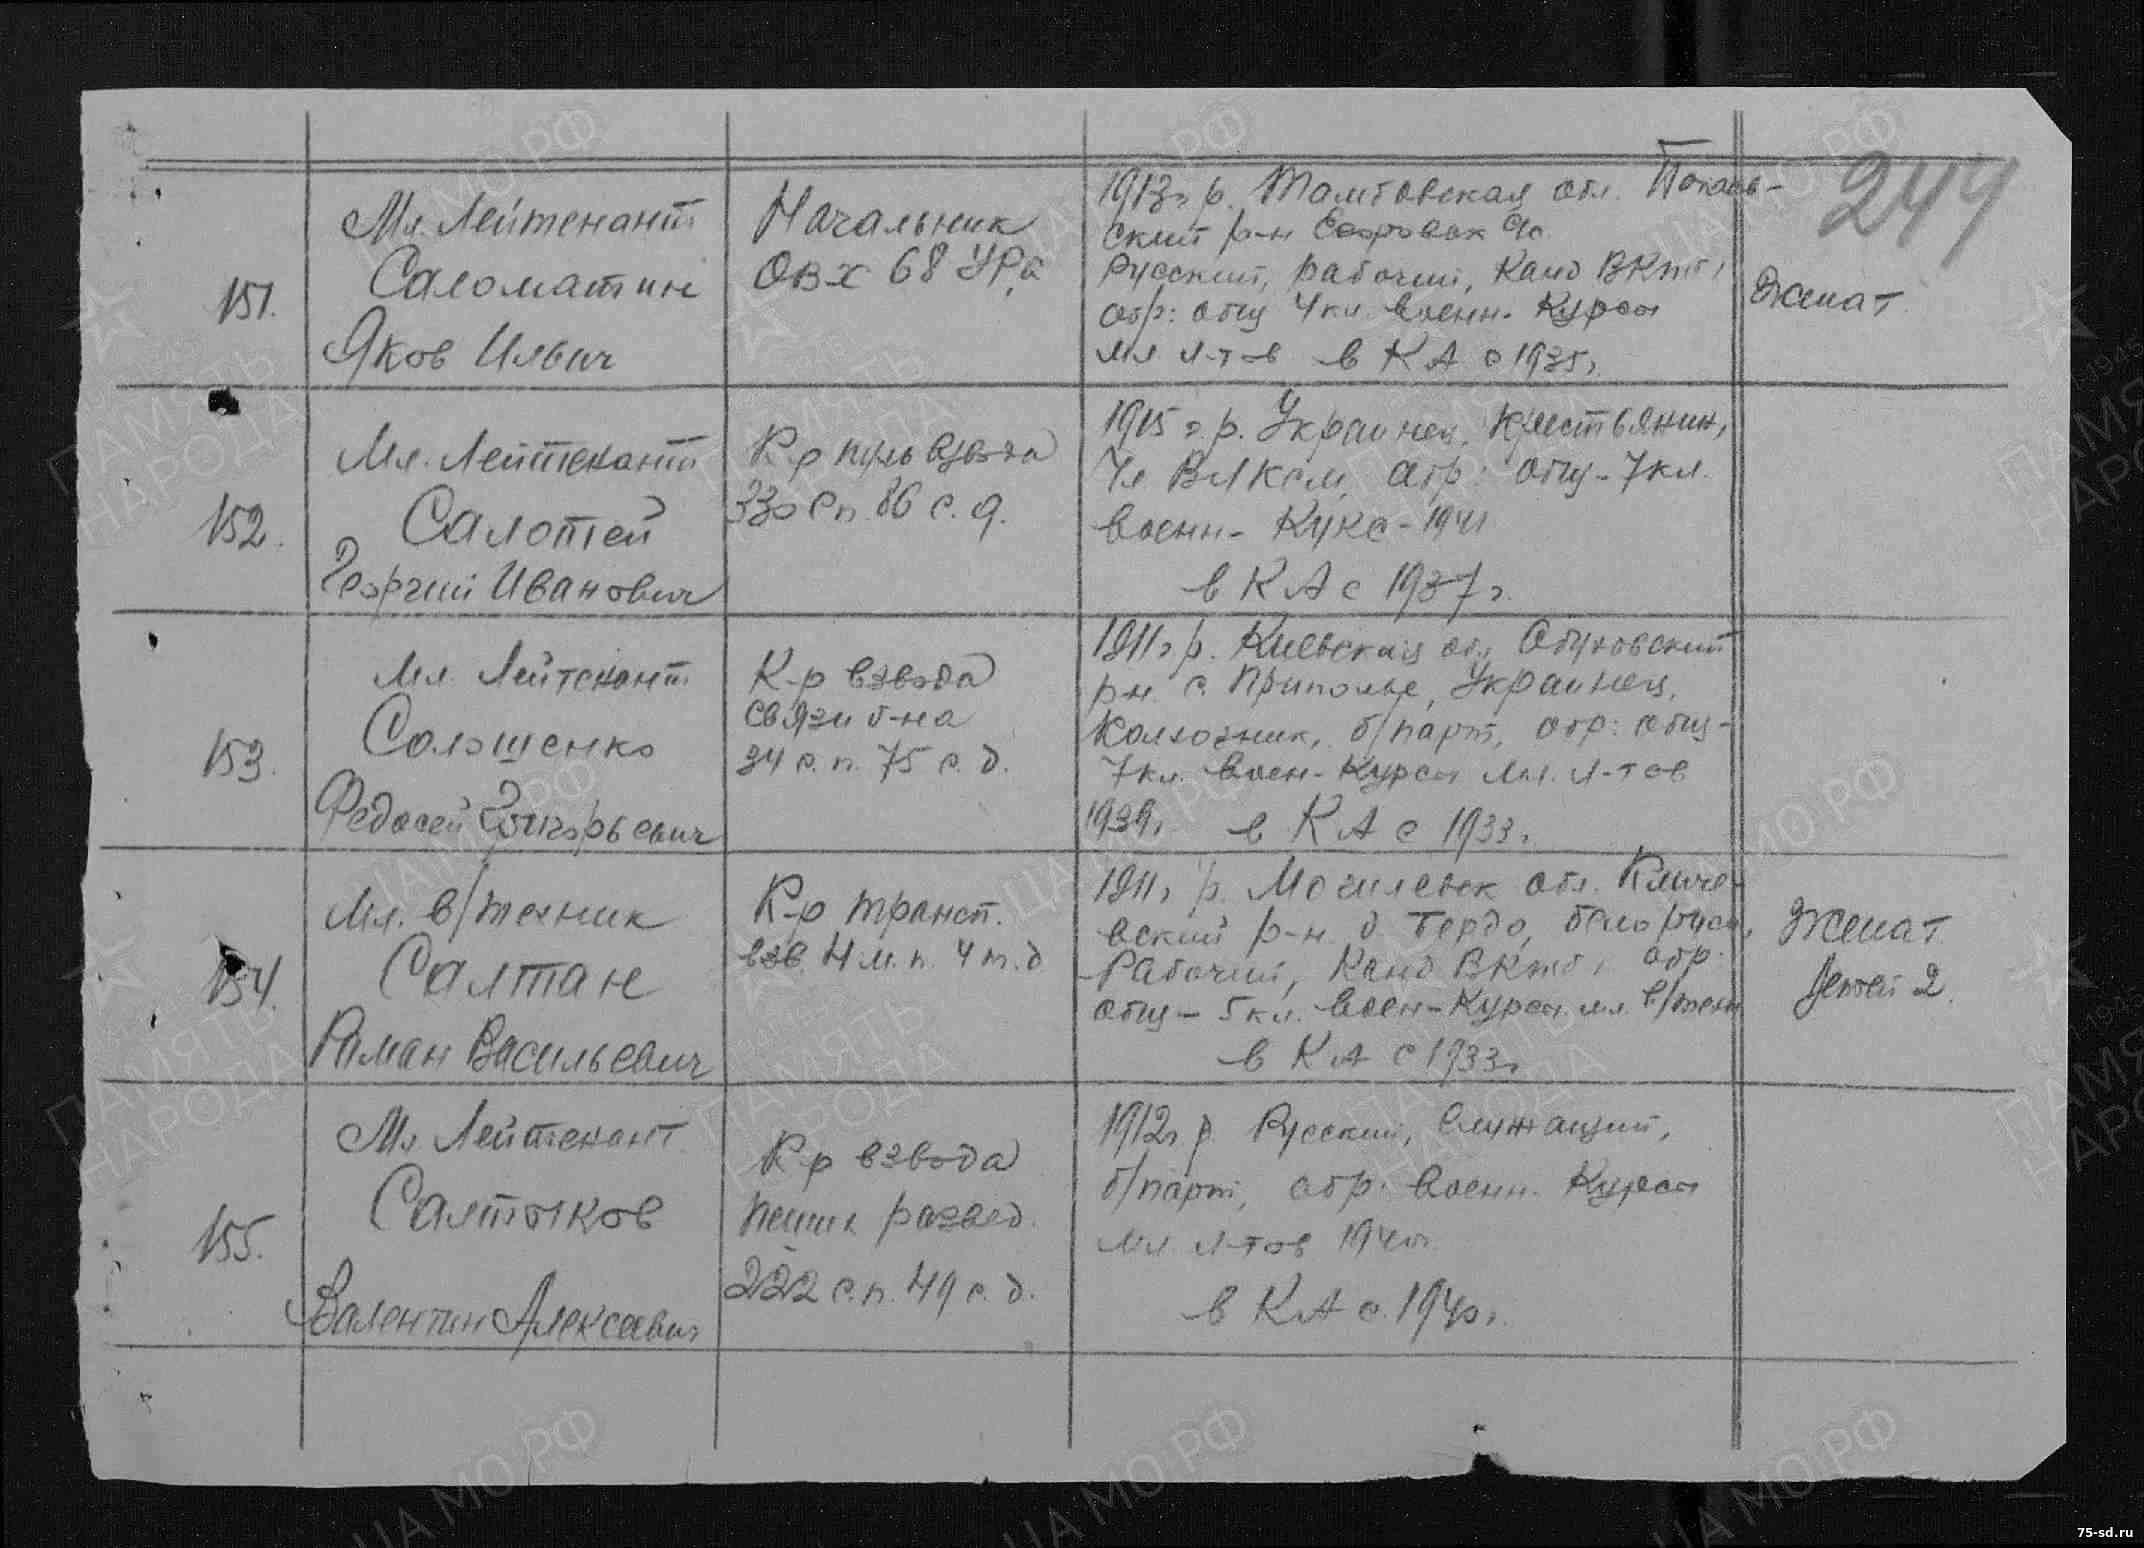 244
151.
Мл. Лейтенант
Саломатин
Яков Ильич
Начальник
ОВХ 68 УР,а
1913г р. Тамбовская обл.
ский р-н
Русский, рабочий, Канд ВКПб,
обр: общ 4кл. военн. Курсы
мл л-тов в КА с 1935г.
Женат
152.
Мл. Лейтенант
Салотей
Георгий Иванович
К-р пуль взвода
330 сп. 86 с. д.
1915 г. р. Украинец, Крестьянин,
Чл ВЛКСМ, обр: общ-7кл.
военн- КУКС-1941
в КА с 1937г.
153.
Мл. Лейтенант
Солошенко
Федосей Григорьевич
К-р взвода
связи б-на
34 с.п. 75 с. д.
1911г р. Киевская обл Обуховский
рн. с. Приполье, Украинец,
Колхозник, б/парт, обр: общ-
7кл. воен-Курсы мл. л-тов
1939г. в КА с 1933г.
154.
Мл. в/техник
Салтан
Раман Васильевич
К-р трансп.
взв. Н м. п. 4 т. д
1911г р. Могилевск обл. Кличе-
вский р-н д Бердо, белорусс,
Рабочий, Канд ВКПб, обр.
общ- 5кл. воен-Курсы мл. в/техн
в КА с 1933г.
Женат
детей 2.
155.
Мл. Лейтенант
Салтыков
Валентин Алексеевич
К-р взвода
пеших развед.
222 с.п. 49 с. д.
1912г р. Русский, Служащий,
б/парт, обр. военн. Курсы
мл. л-тов 1940г.
в КА с. 1940г.
ПАМЯТЬ
НАРОДА
ЦА МО РФ
75-sd.ru